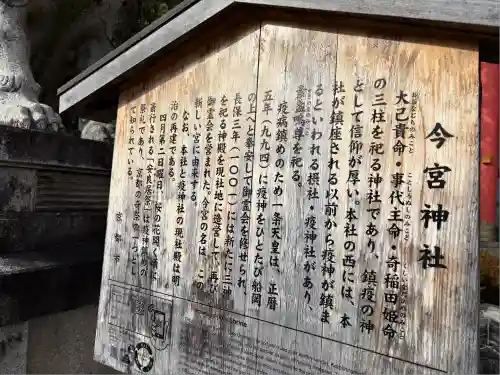 今宮神社
大己貴命・事代主命・奇稲田姫命
の三柱を祀る神社であり、鎮疫の神
として信仰が厚い。本社の西には、本
社が鎮座される以前から疫神が鎮ま
るといわれる摂社・疫神社があり、
素盞嗚尊を祀る。
疫病鎮めのため一条天皇は、正暦
五年（九九四）に疫神をひとたび船岡
の上へと奉安して御霊会を修せられ、
長保三年（一〇〇一）には新たに三神
を祀る神殿を現社地に造営して、再び
御霊会を営まれた。今宮の名は、この
新しい宮に由来する。
なお、本社と疫神社の現社殿は明
治の再建である。
四月第二日曜日、桜の花開く頃に
斎行される「安良居祭」は疫神鎮めの
祭礼であり、京都の奇祭の一つとし
て知られている。
京都市